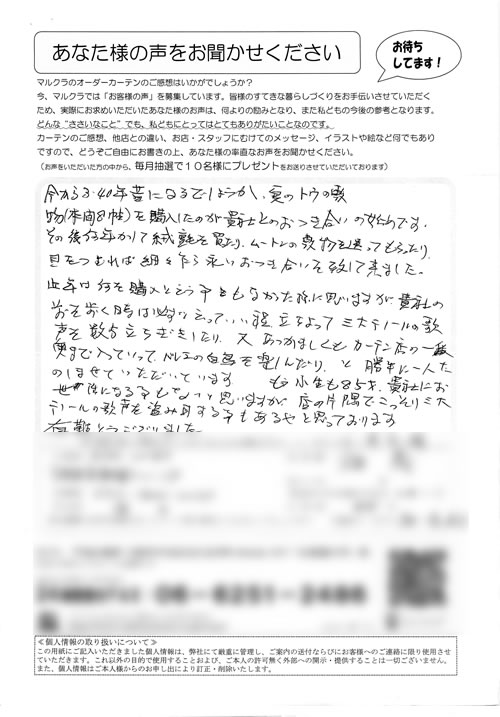 あなた様の声をお聞かせください
お待ち
してます!
マルクラのオーダーカーテンのご感想はいかがでしょうか?
今、マルクラでは「お客様の声」を募集しています。皆様のすてきな暮らしづくりをお手伝いさせていただく
ため、実際にお求めいただいたあなた様のお声は、何よりの励みとなり、また私どもの今後の参考となります。
どんな“ささいなこと”でも、私どもにとってはとてもありがたいことなのです。
カーテンのご感想、他店との違い、お店・スタッフにむけてのメッセージ、イラストや絵など何でもあり
ですので、どうぞご自由にお書きの上、あなた様の率直なお声をお聞かせください。
(お声をいただいた方の中から、毎月抽選で10名様にプレゼントをお送りさせていただいております)
今から3.40年昔になるでしょうか、夏のトウの敷
物(本間8帖)を購入したのが貴社とのおつき合いの始めです。
その後何年かして絨毯を買たり、ムートンの敷物を送ってもらったり、
目をつむれば細々乍ら永いおつき合いを致して来ました。
近年は何を購入と云う事もなかった様に思いますが貴社の
前を歩く時は必ずと云っていい程、立ちよってミナミテノールの歌
声を数分立ちぎきしたり、又あつかましくもカーテン店の一番
奥まで入っていってバレエの白鳥を楽しんだり、と勝手に一人た
のしませていただいています もう小生も85才、貴社にお
世話になる事もないと思いますが 店の片隅でこっそりミナミ
テノールの歌声を盗み耳する事もあるやと思っております
有難とうございました
06-6251-2486
≪個人情報の取り扱いについて≫
この用紙にご記入いただきました個人情報は、弊社にて厳重に管理し、ご案内の送付ならびにお客様へのご連絡に限り使用させ
ていただきます。これ以外の目的で使用することおよび、ご本人の許可無く外部への開示・提供することは一切ございません。
また、個人情報はご本人様からのお申し出により訂正・削除いたします。